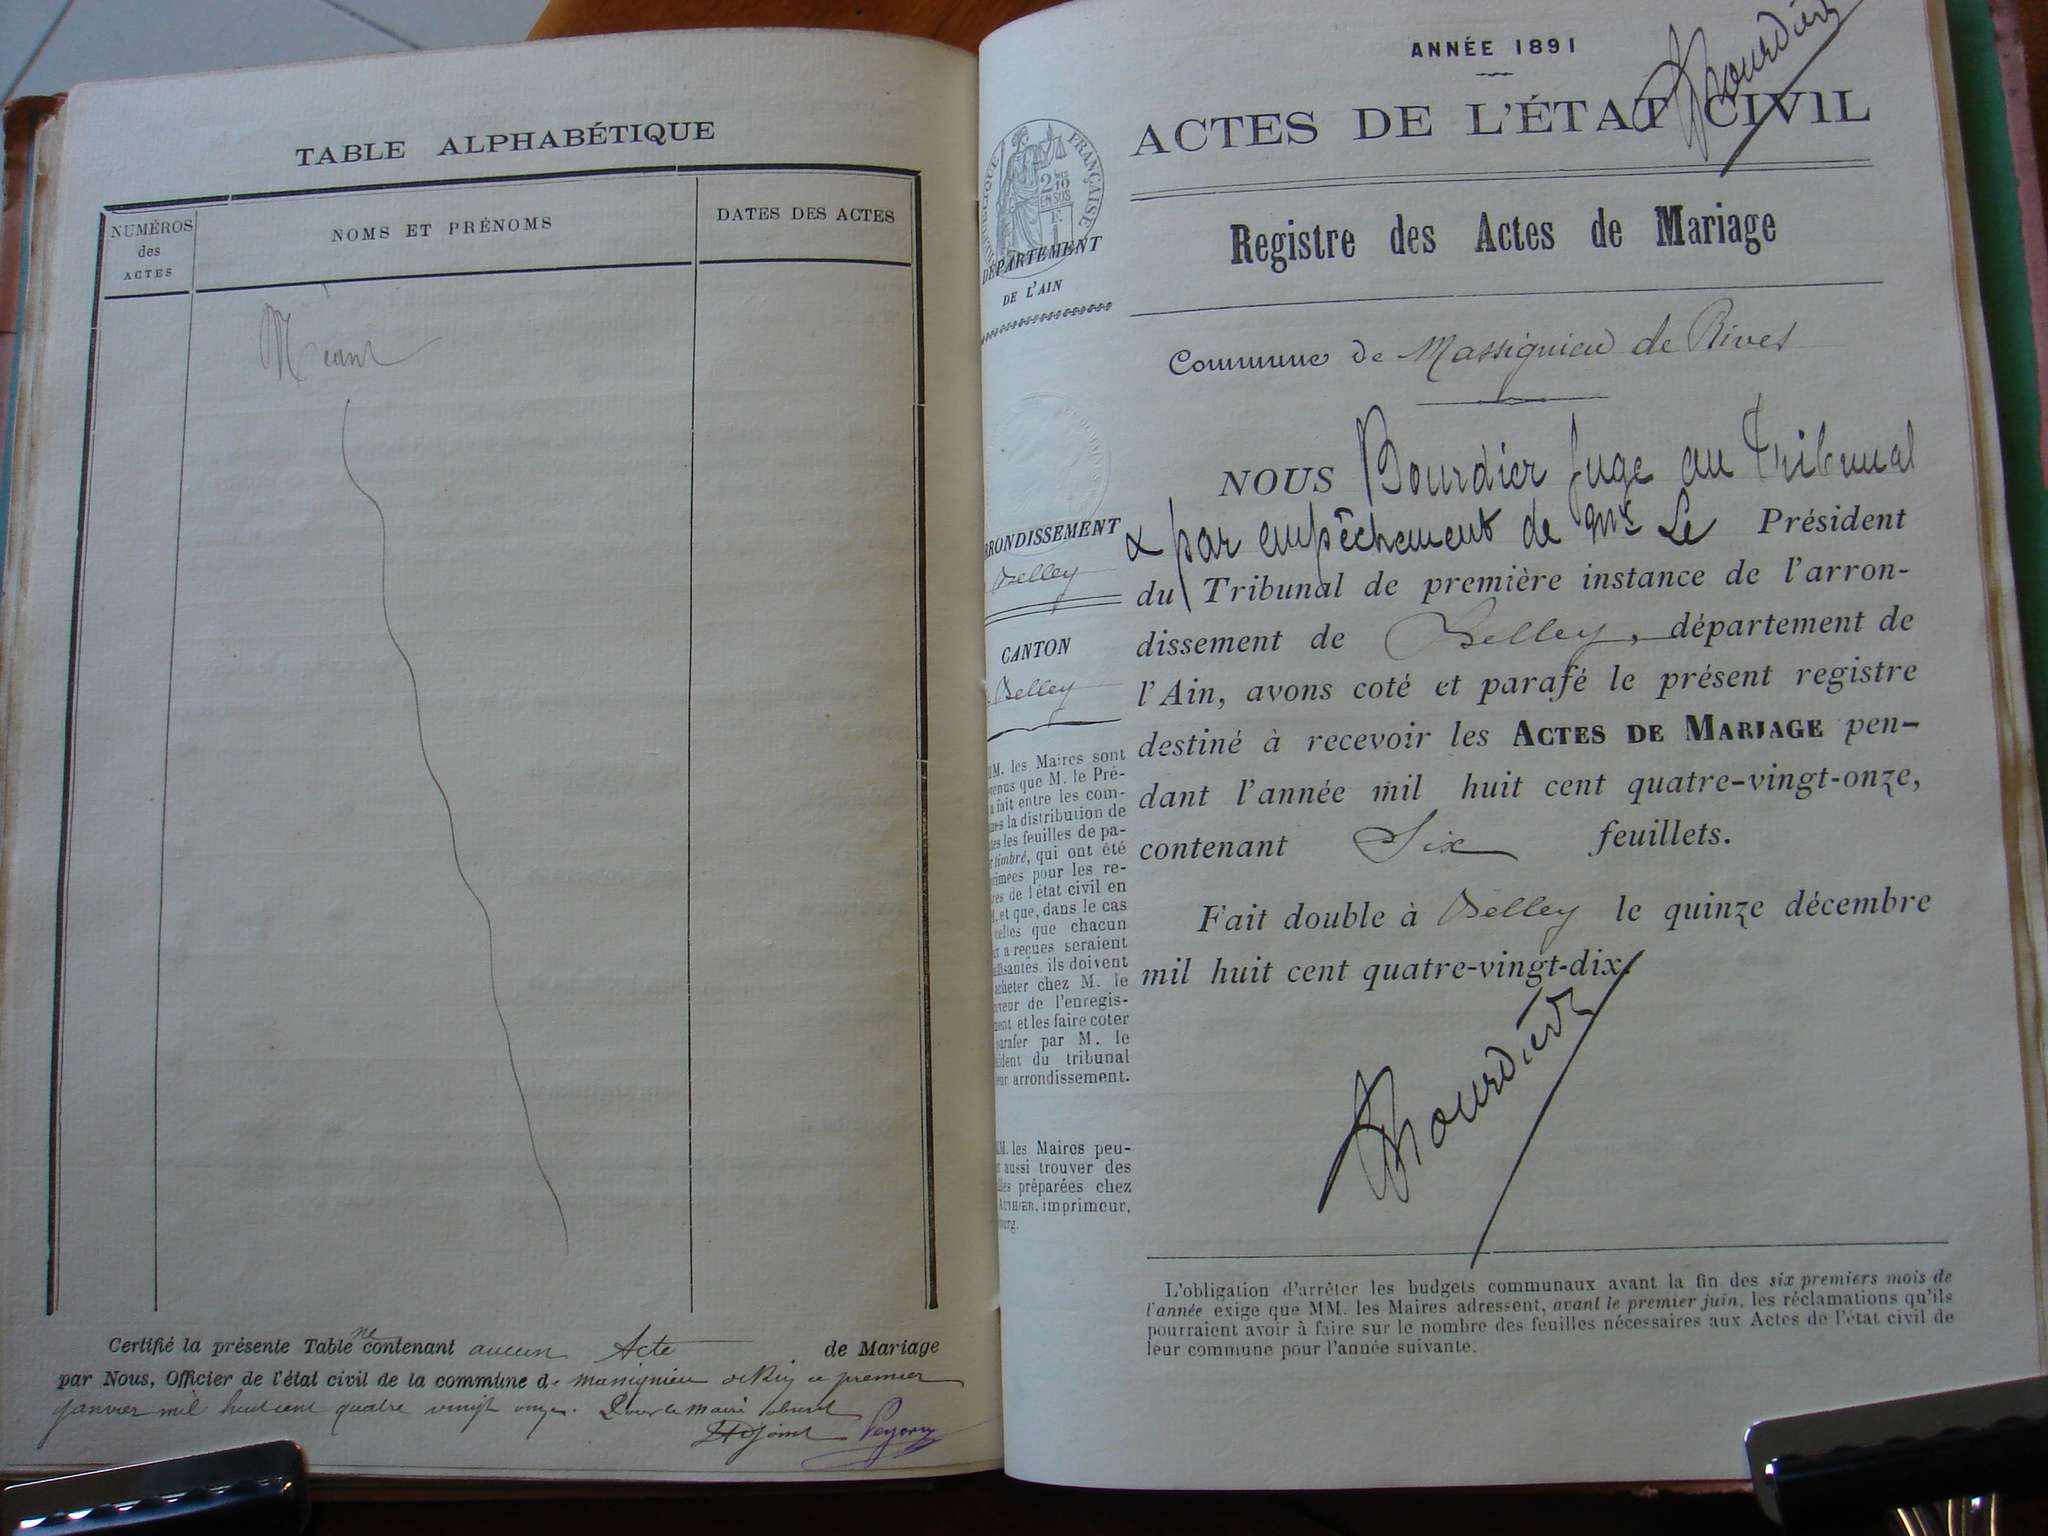 TABLE ALPHABÉTIQUE
NUMÉROS
des
ACTES
NOMS ET PRÉNOMS
DATES DES ACTES
Néant
Certifié la présente Table ne contenant aucun Acte de Mariage
par Nous, Officier de l'état civil de la commune de Massignieu de Rives ce premier
janvier mil huit cent quatre vingt onze. Pour le maire absent
L'Adjoint
ANNÉE 1891
ACTES DE L'ÉTAT CIVIL
Bourdier
RÉPUBLIQUE FRANÇAISE
2/10 EN SUS
DÉPARTEMENT
DE L'AIN
Registre des Actes de Mariage
Commune de Massignieu de Rives
ARRONDISSEMENT
Belley
CANTON
Belley
MM. les Maires sont
venus que M. le Pré-
a fait entre les com-
nes la distribution de
tes les feuilles de pa-
r timbré, qui ont été
rimées pour les re-
res de l'état civil en
et que, dans le cas
celles que chacun
ux a reçues seraient
uffisantes, ils doivent
acheter chez M. le
eveur de l'enregis-
ment et les faire coter
parafer par M. le
sident du tribunal
eur arrondissement.
MM. les Maires peu-
t aussi trouver des
lles préparées chez
AUTHIER, imprimeur,
ourg.
NOUS Bourdier Juge au Tribunal
& par empêchement de Mr Le Président
du Tribunal de première instance de l'arron-
dissement de Belley, département de
l'Ain, avons coté et parafé le présent registre
destiné à recevoir les ACTES DE MARIAGE pen-
dant l'année mil huit cent quatre-vingt-onze,
contenant Six feuillets.
Fait double à Belley le quinze décembre
mil huit cent quatre-vingt-dix.
Bourdier
L'obligation d'arrêter les budgets communaux avant la fin des six premiers mois de
l'année exige que MM. les Maires adressent, avant le premier juin, les réclamations qu'ils
pourraient avoir à faire sur le nombre des feuilles nécessaires aux Actes de l'état civil de
leur commune pour l'année suivante.